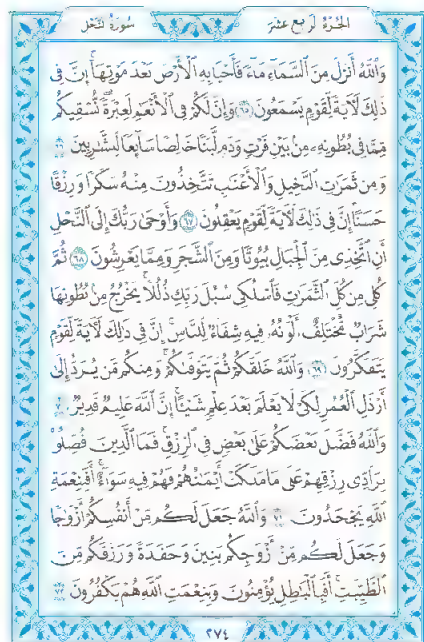 الجزء الرابع عشر
سورة النحل
وَٱللَّهُ أَنزَلَ مِنَ ٱلسَّمَآءِ مَآءً فَأَحْيَا بِهِ ٱلْأَرْضَ بَعْدَ مَوْتِهَآ إِنَّ فِى
ذَٰلِكَ لَآيَةً لِّقَوْمٍ يَسْمَعُونَ ٦٥ وَإِنَّ لَكُمْ فِى ٱلْأَنْعَٰمِ لَعِبْرَةً نُّسْقِيكُم
مِّمَّا فِى بُطُونِهِۦ مِنۢ بَيْنِ فَرْثٍ وَدَمٍ لَّبَنًا خَالِصًا سَآئِغًا لِّلشَّٰرِبِينَ ٦٦
وَمِن ثَمَرَٰتِ ٱلنَّخِيلِ وَٱلْأَعْنَٰبِ تَتَّخِذُونَ مِنْهُ سَكَرًا وَرِزْقًا
حَسَنًا إِنَّ فِى ذَٰلِكَ لَآيَةً لِّقَوْمٍ يَعْقِلُونَ ٦٧ وَأَوْحَىٰ رَبُّكَ إِلَى ٱلنَّحْلِ
أَنِ ٱتَّخِذِى مِنَ ٱلْجِبَالِ بُيُوتًا وَمِنَ ٱلشَّجَرِ وَمِمَّا يَعْرِشُونَ ٦٨ ثُمَّ
كُلِى مِن كُلِّ ٱلثَّمَرَٰتِ فَٱسْلُكِى سُبُلَ رَبِّكِ ذُلُلًا يَخْرُجُ مِنۢ بُطُونِهَا
شَرَابٌ مُّخْتَلِفٌ أَلْوَٰنُهُۥ فِيهِ شِفَآءٌ لِّلنَّاسِ إِنَّ فِى ذَٰلِكَ لَآيَةً لِّقَوْمٍ
يَتَفَكَّرُونَ ٦٩ وَٱللَّهُ خَلَقَكُمْ ثُمَّ يَتَوَفَّىٰكُمْ وَمِنكُم مَّن يُرَدُّ إِلَىٰٓ
أَرْذَلِ ٱلْعُمُرِ لِكَىْ لَا يَعْلَمَ بَعْدَ عِلْمٍ شَيْـًٔا إِنَّ ٱللَّهَ عَلِيمٌ قَدِيرٌ ٧٠
وَٱللَّهُ فَضَّلَ بَعْضَكُمْ عَلَىٰ بَعْضٍ فِى ٱلرِّزْقِ فَمَا ٱلَّذِينَ فُضِّلُوا۟
بِرَآدِّى رِزْقِهِمْ عَلَىٰ مَا مَلَكَتْ أَيْمَٰنُهُمْ فَهُمْ فِيهِ سَوَآءٌ أَفَبِنِعْمَةِ
ٱللَّهِ يَجْحَدُونَ ٧١ وَٱللَّهُ جَعَلَ لَكُم مِّنْ أَنفُسِكُمْ أَزْوَٰجًا
وَجَعَلَ لَكُم مِّنْ أَزْوَٰجِكُم بَنِينَ وَحَفَدَةً وَرَزَقَكُم مِّنَ
ٱلطَّيِّبَٰتِ أَفَبِٱلْبَٰطِلِ يُؤْمِنُونَ وَبِنِعْمَتِ ٱللَّهِ هُمْ يَكْفُرُونَ ٧٢
٢٧٤